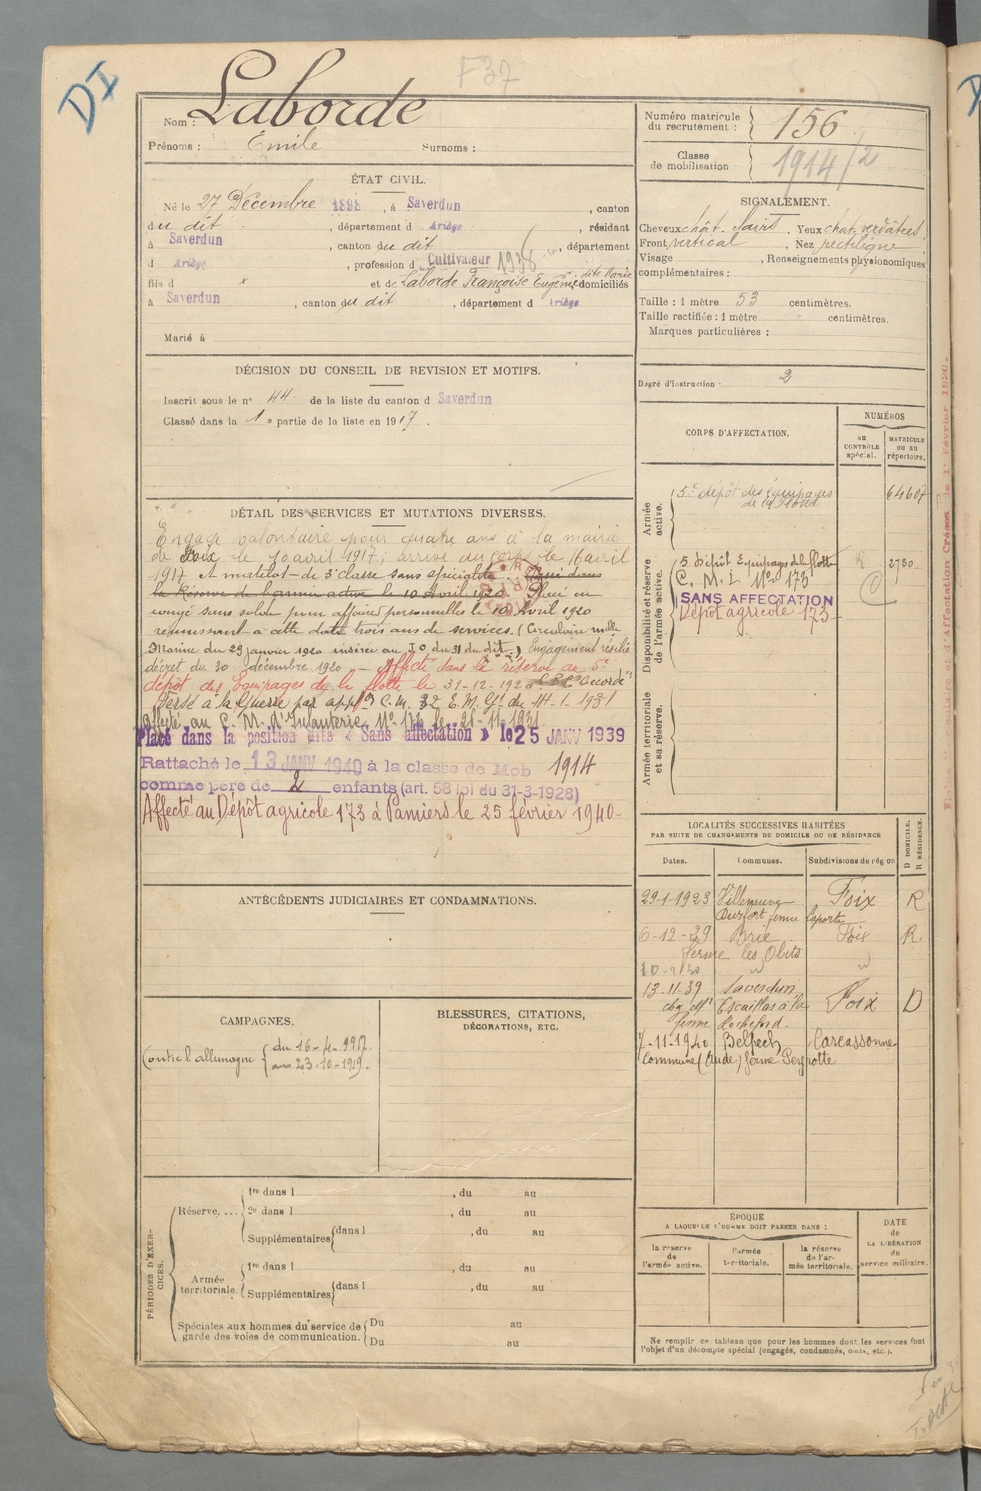 DI
F37
Nom : Laborde
Prénoms : Emile Surnoms :
ÉTAT CIVIL.
Né le 27 Décembre 1898, à Saverdun, canton
du dit, département d Ariège, résidant
à Saverdun, canton du dit, département
d Ariège, profession d Cultivateur 1936
fils d x et de Laborde Françoise Eugénie dite Marie domiciliés
à Saverdun, canton du dit, département d Ariège
Marié à
DÉCISION DU CONSEIL DE REVISION ET MOTIFS.
Inscrit sous le n° 44 de la liste du canton d Saverdun
Classé dans la 1e partie de la liste en 1917.
DÉTAIL DES SERVICES ET MUTATIONS DIVERSES.
Engagé volontaire pour quatre ans à la mairie
de Foix le 10 avril 1917; arrivé au corps le 16 avril
1917 et matelot de 3e classe sans spécialité. Passé dans
la Réserve de l'armée active le 10 Avril 1920. Placé en
congé sans solde pour affaires personnelles le 10 Avril 1920
réunissant à cette date trois ans de services. (Circulaire mlle
Marine du 29 janvier 1920 insérée au J.O. du 31 du dit.) Engagement résilié
décret du 30 décembre 1920 - Affecté dans la réserve au 5e
dépôt des Equipages de la flotte le 31-12-1920 Accordé
Versé à la Guerre par appon C.M. 32 E.M.Gl du 14-1-1931
Affecté au C.M. d'Infanterie N° 173 le 21-11-1931.
Placé dans la position dite « Sans affectation » le 25 JANV 1939
Rattaché le 13 JANV 1940 à la classe de Mob 1914
comme père de 2 enfants (art. 58 loi du 31-3-1928)
Affecté au Dépôt agricole 173 à Pamiers le 25 février 1940.
ANTÉCÉDENTS JUDICIAIRES ET CONDAMNATIONS.
CAMPAGNES.
Contre l'allemagne { du 16-4-1917
au 23-10-1919.
BLESSURES, CITATIONS,
DÉCORATIONS, ETC.
PÉRIODES D'EXERCICES.
Réserve. ... 1re dans l , du au
2e dans l , du au
Supplémentaires dans l , du au
Armée territoriale. 1re dans l , du au
Supplémentaires dans l , du au
Spéciales aux hommes du service de Du au
garde des voies de communication. Du au
Numéro matricule
du recrutement : 156
Classe
de mobilisation 1914/2
SIGNALEMENT.
Cheveux chât. clairs. Yeux chat. verdâtres
Front vertical, Nez rectiligne
Visage , Renseignements physionomiques
complémentaires :
Taille : 1 mètre 53 centimètres.
Taille rectifiée : 1 mètre centimètres.
Marques particulières :
Degré d'instruction · 2
CORPS D'AFFECTATION.
NUMÉROS
AU CONTRÔLE spécial.
MATRICULE OU AU répertoire.
Armée active.
5e dépôt des équipages 64607
de la flotte
Disponibilité et réserve de l'armée active.
5 Dépôt Equipages de la flotte R 2730
C. M. I. N° 173
SANS AFFECTATION
Dépôt agricole 173
Armée territoriale et sa réserve.
LOCALITÉS SUCCESSIVES HABITÉES
PAR SUITE DE CHANGEMENTS DE DOMICILE OU DE RÉSIDENCE
D DOMICILE.
R RÉSIDENCE.
Dates. Communes. Subdivisions de région
29-1-1923 Villeneuve Foix R
Durfort ferme Laporte
6-12-29 Brie Foix R.
ferme les Obits
13-11-39 Saverdun Foix D
Escaillas à la
ferme Rochefort.
7-11-1940 Belpech Carcassonne
Commune (Aude) ferme Peyrotte
ÉPOQUE
A LAQUELLE L'HOMME DOIT PASSER DANS :
la réserve de l'armée active.
l'armée territoriale.
la réserve de l'armée territoriale.
DATE
de
LA LIBÉRATION
du
service militaire.
Ne remplir ce tableau que pour les hommes dont les services font
l'objet d'un décompte spécial (engagés, condamnés, omis, etc.).